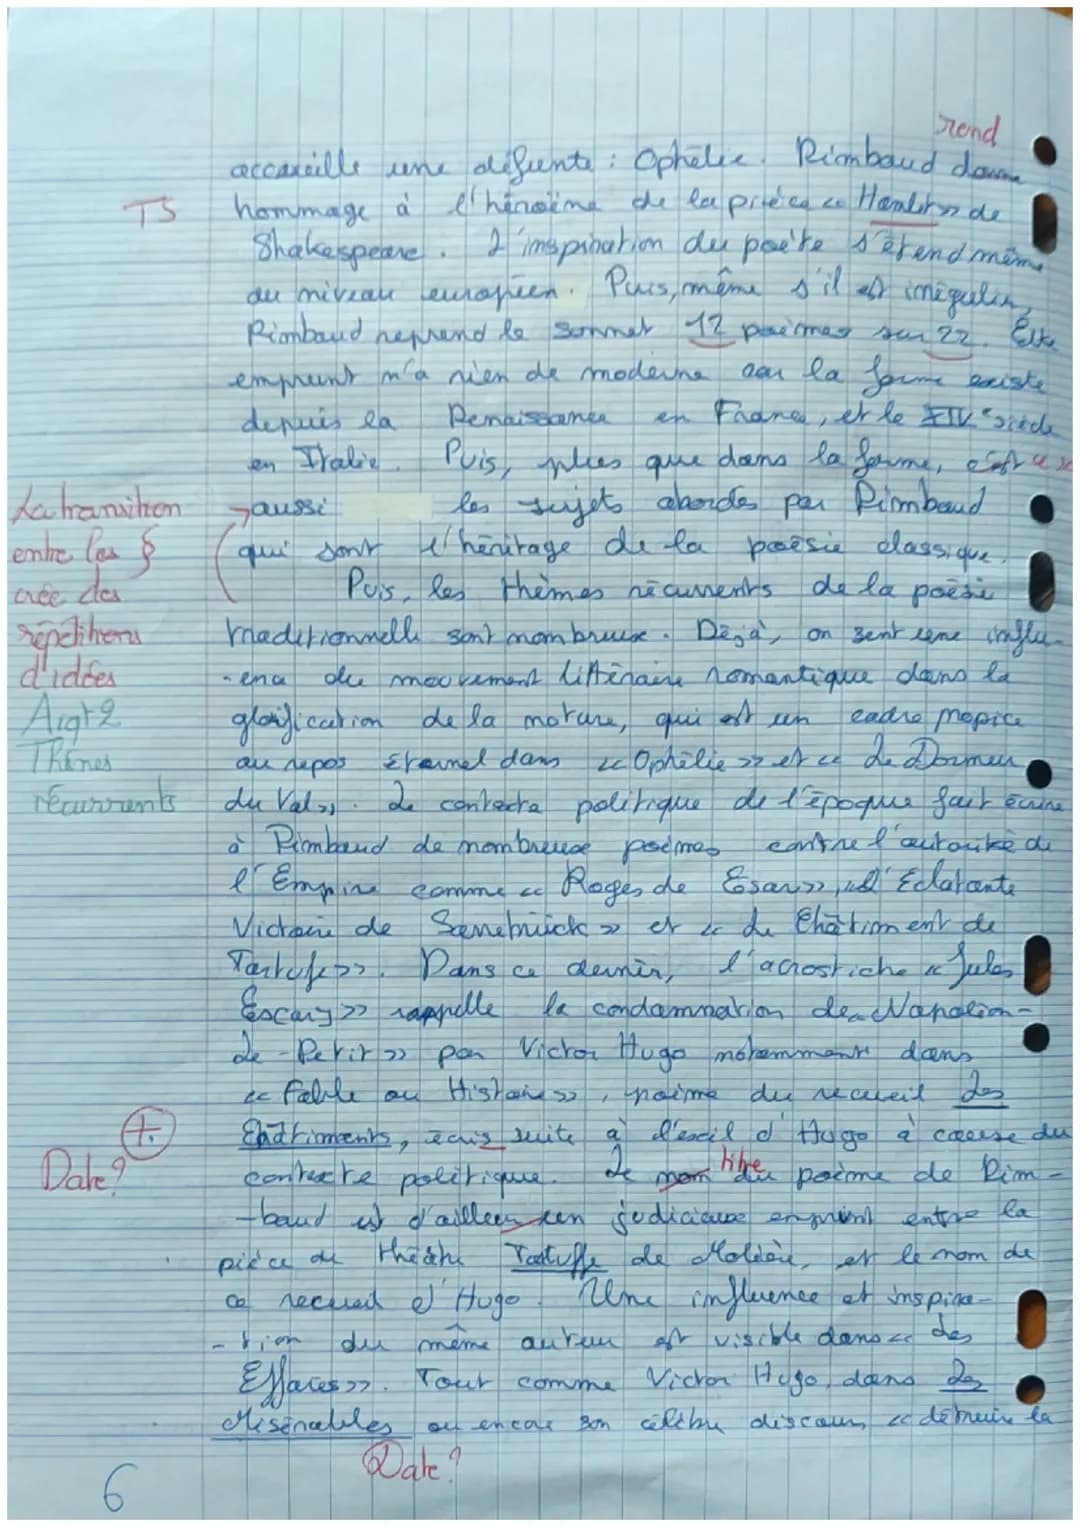 rend
accueille une défunte : Ophélie. Rimbaud donne
TS
hommage à l'héroïne de la pièce « Hamlet » de
Shakespeare. L'inspiration du poète s'étend même
au niveau européen. Puis, même s'il est irrégulier,
Rimbaud reprend le sonnet 12 poèmes sur 22. Cet
emprunt n'a rien de moderne car la forme existe
depuis la Renaissance en France, et le XIVe siècle
en Italie. Puis, plus que dans la forme, c'est
La transition
entre les §
crée des
répétitions
d'idées
aussi les sujets abordés par Rimbaud
qui sont l'héritage de la poésie classique.
Puis, les thèmes récurrents de la poésie
traditionnelle sont nombreux. Déjà, on sent une influ-
-ence du mouvement littéraire romantique dans la
Argt 2
Thèmes
récurrents
glorification de la nature, qui est un cadre propice
au repos éternel dans « Ophélie » et « Le Dormeur
du Val ». Le contexte politique de l'époque fait écrire
à Rimbaud de nombreux poèmes contre l'autorité de
l'Empire comme « Rages de Césars », « L'Eclatante
Victoire de Sarrebrück » et « Le Châtiment de
Tartufe ». Dans ce dernier, l'acrostiche « Jules
Cesar » rappelle la condamnation de « Napoléon-
le-Petit » par Victor Hugo notamment dans
« Fable ou Histoire », poème du recueil Les
+
Date ?
Châtiments, écris suite à l'exil d'Hugo à cause du
contexte politique. Le nom titre du poème de Rim-
-baud est d'ailleur un judicieux emprunt entre la
pièce de théâtre Tartuffe de Molière, et le nom de
ce recueil d'Hugo. Une influence et inspira-
-tion du même auteur est visible dans « Les
Effarés ». Tout comme Victor Hugo, dans Les
Misérables ou encore son célèbre discours, « détruire la
Date ?
6